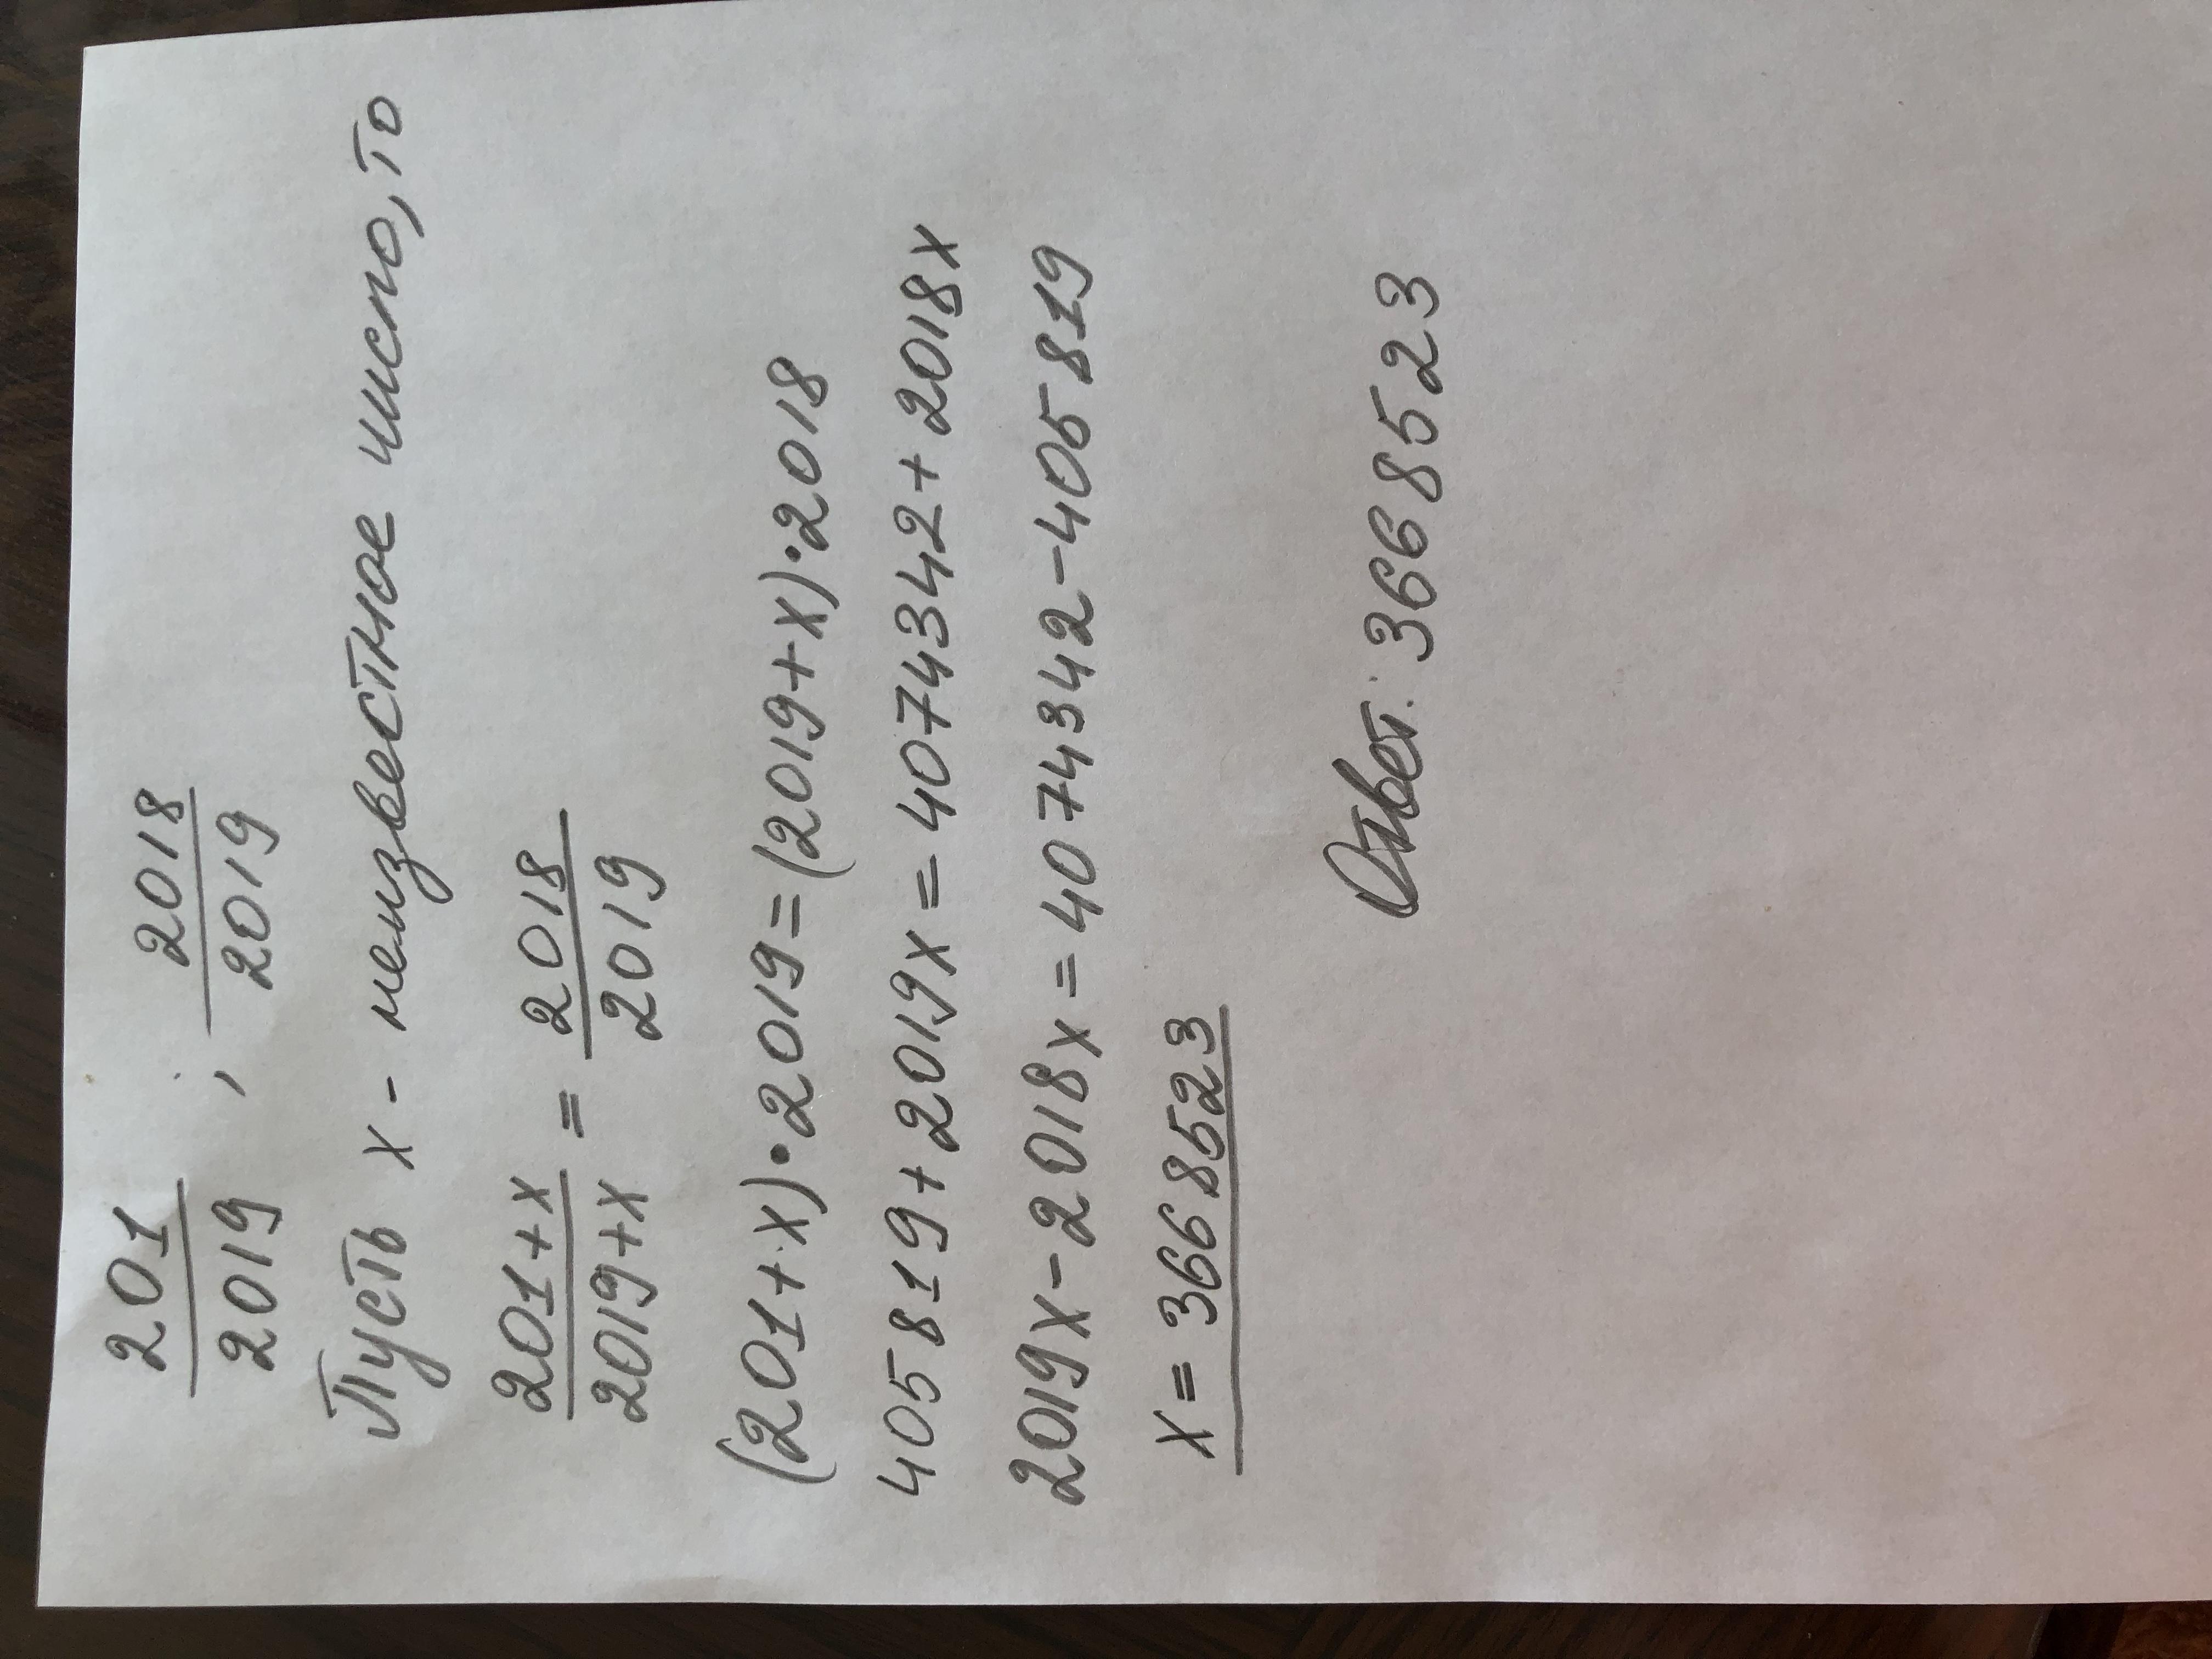 201/2019 ; 2018/2019
Пусть x - неизвестное число, то
201+x/2019+x = 2018/2019
(201+x)·2019=(2019+x)·2018
405819+2019x=4074342+2018x
2019x-2018x=4074342-405819
x=3668523
Ответ: 3668523